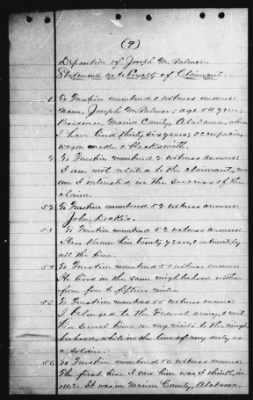 (9)
Deposition of Joseph M. Palmer
Statements as to Loyalty of Claimant.
1. To Question numbered 1 witness answers:
name, Joseph M. Palmer; age 54 years;
residence, Marion County, Alabama, where
I have lived thirty six years; occupation
wagon maker & blacksmith.
2. To Question numbered 2 witness answers:
I am not related to the claimant, nor
am I interested in the success of the
claim.
52. To Question numbered 52 witness answers:
John
53. To Question numbered 53 witness answers:
Have known him twenty years, intimately
all the time.
54. To Question numbered 54 witness answers:
He lives in the same neighborhood within
from four to fifteen miles.
55. To Question numbered 55 witness answers:
I belonged to the Federal army, & met
him several times on my visits to the neigh-
borhood, while in the line of my duty as
a soldier.
56. To Question numbered 56 witness answers:
The first time I saw him was
in Marion County, Alabama.